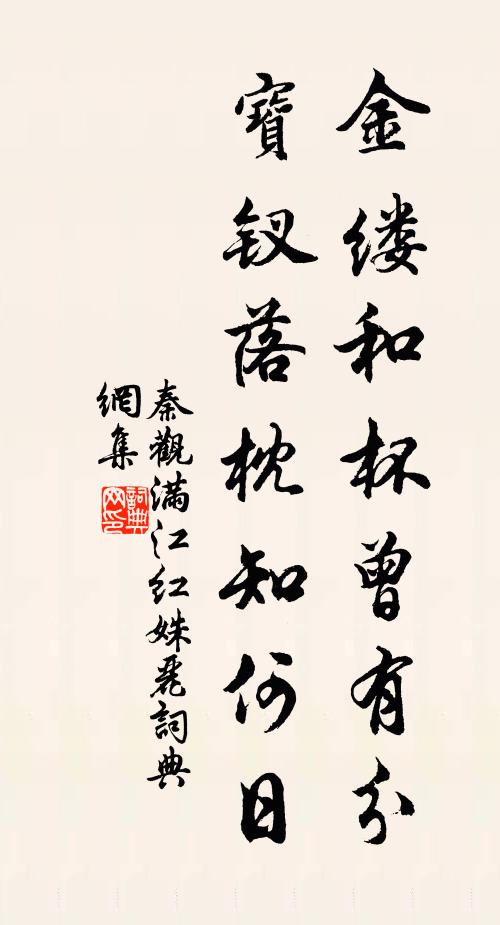 金缕和杯曾有分
寶钗落枕知何日
秦觀满江红姝麗詞典
網集
詞典
网印